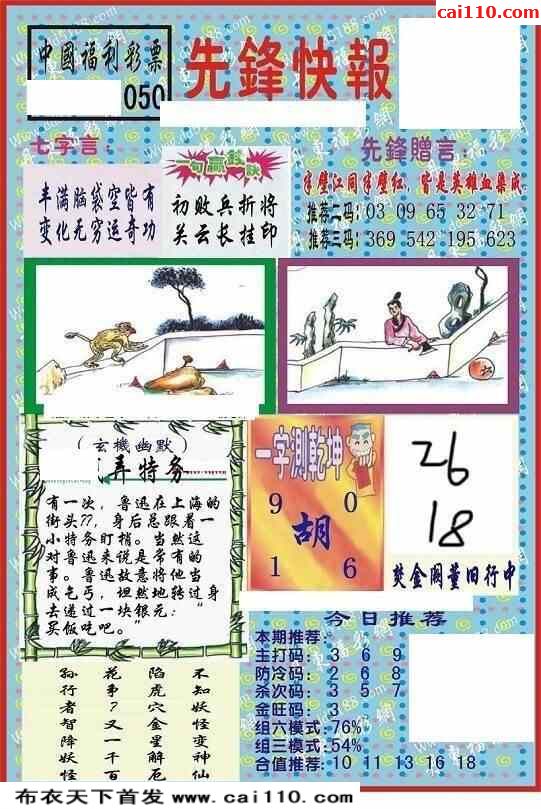 cai110.com
中國福利彩票
050
先鋒快報
七字言:
丰满脑袋空皆有
变化无穷运奇功
一句赢钱诀
初败兵折将
关云长挂印
先鋒贈言:
半壁江同半壁红,皆是英雄血染成
推荐二码: 03 09 65 32 71
推荐三码: 369 542 195 623
六
(玄機幽默)
弄特务
有一次,鲁迅在上海的
街头??,身后总跟着一
小特务盯梢。当然这
对鲁迅来说是常有的
事。鲁迅故意将他当
成乞丐,坦然地转过身
去递过一块银元:“
买饭吃吧。”
一字测乾坤
9 0
胡
1 6
26
18
焚金阙董旧行中
今日推荐
本期推荐:
主打码: 3 6 9
防冷码: 2 6 8
杀次码: 3 5 7
金旺码: 3
组六模式: 76%
组三模式: 54%
合值推荐: 10 11 13 16 18
不知妖怪变神仙
陷虎穴金星解厄
花事?又一千百
孙行者智降妖怪
布衣天下首发 www.cai110.com